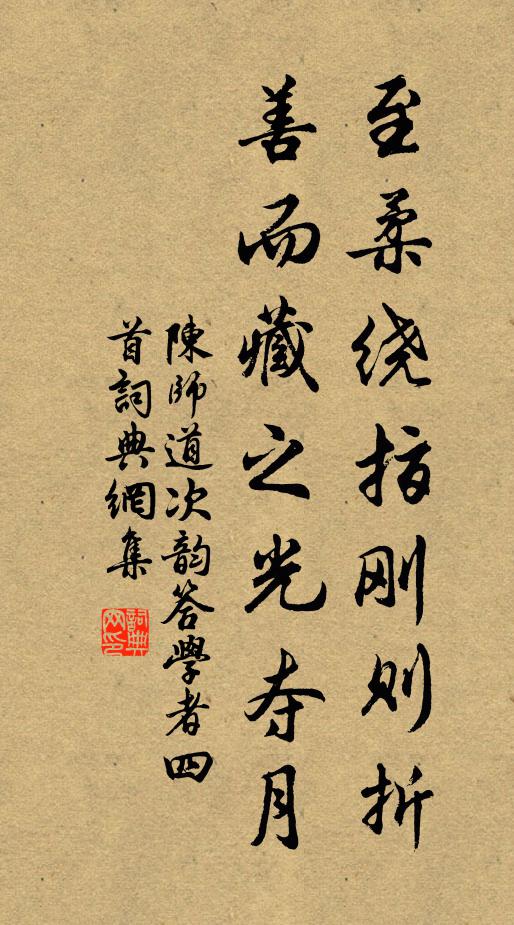 至柔绕指刚则折
善而藏之光夺月
陳師道次韵答學者四
首詞典網集
詞典
网印